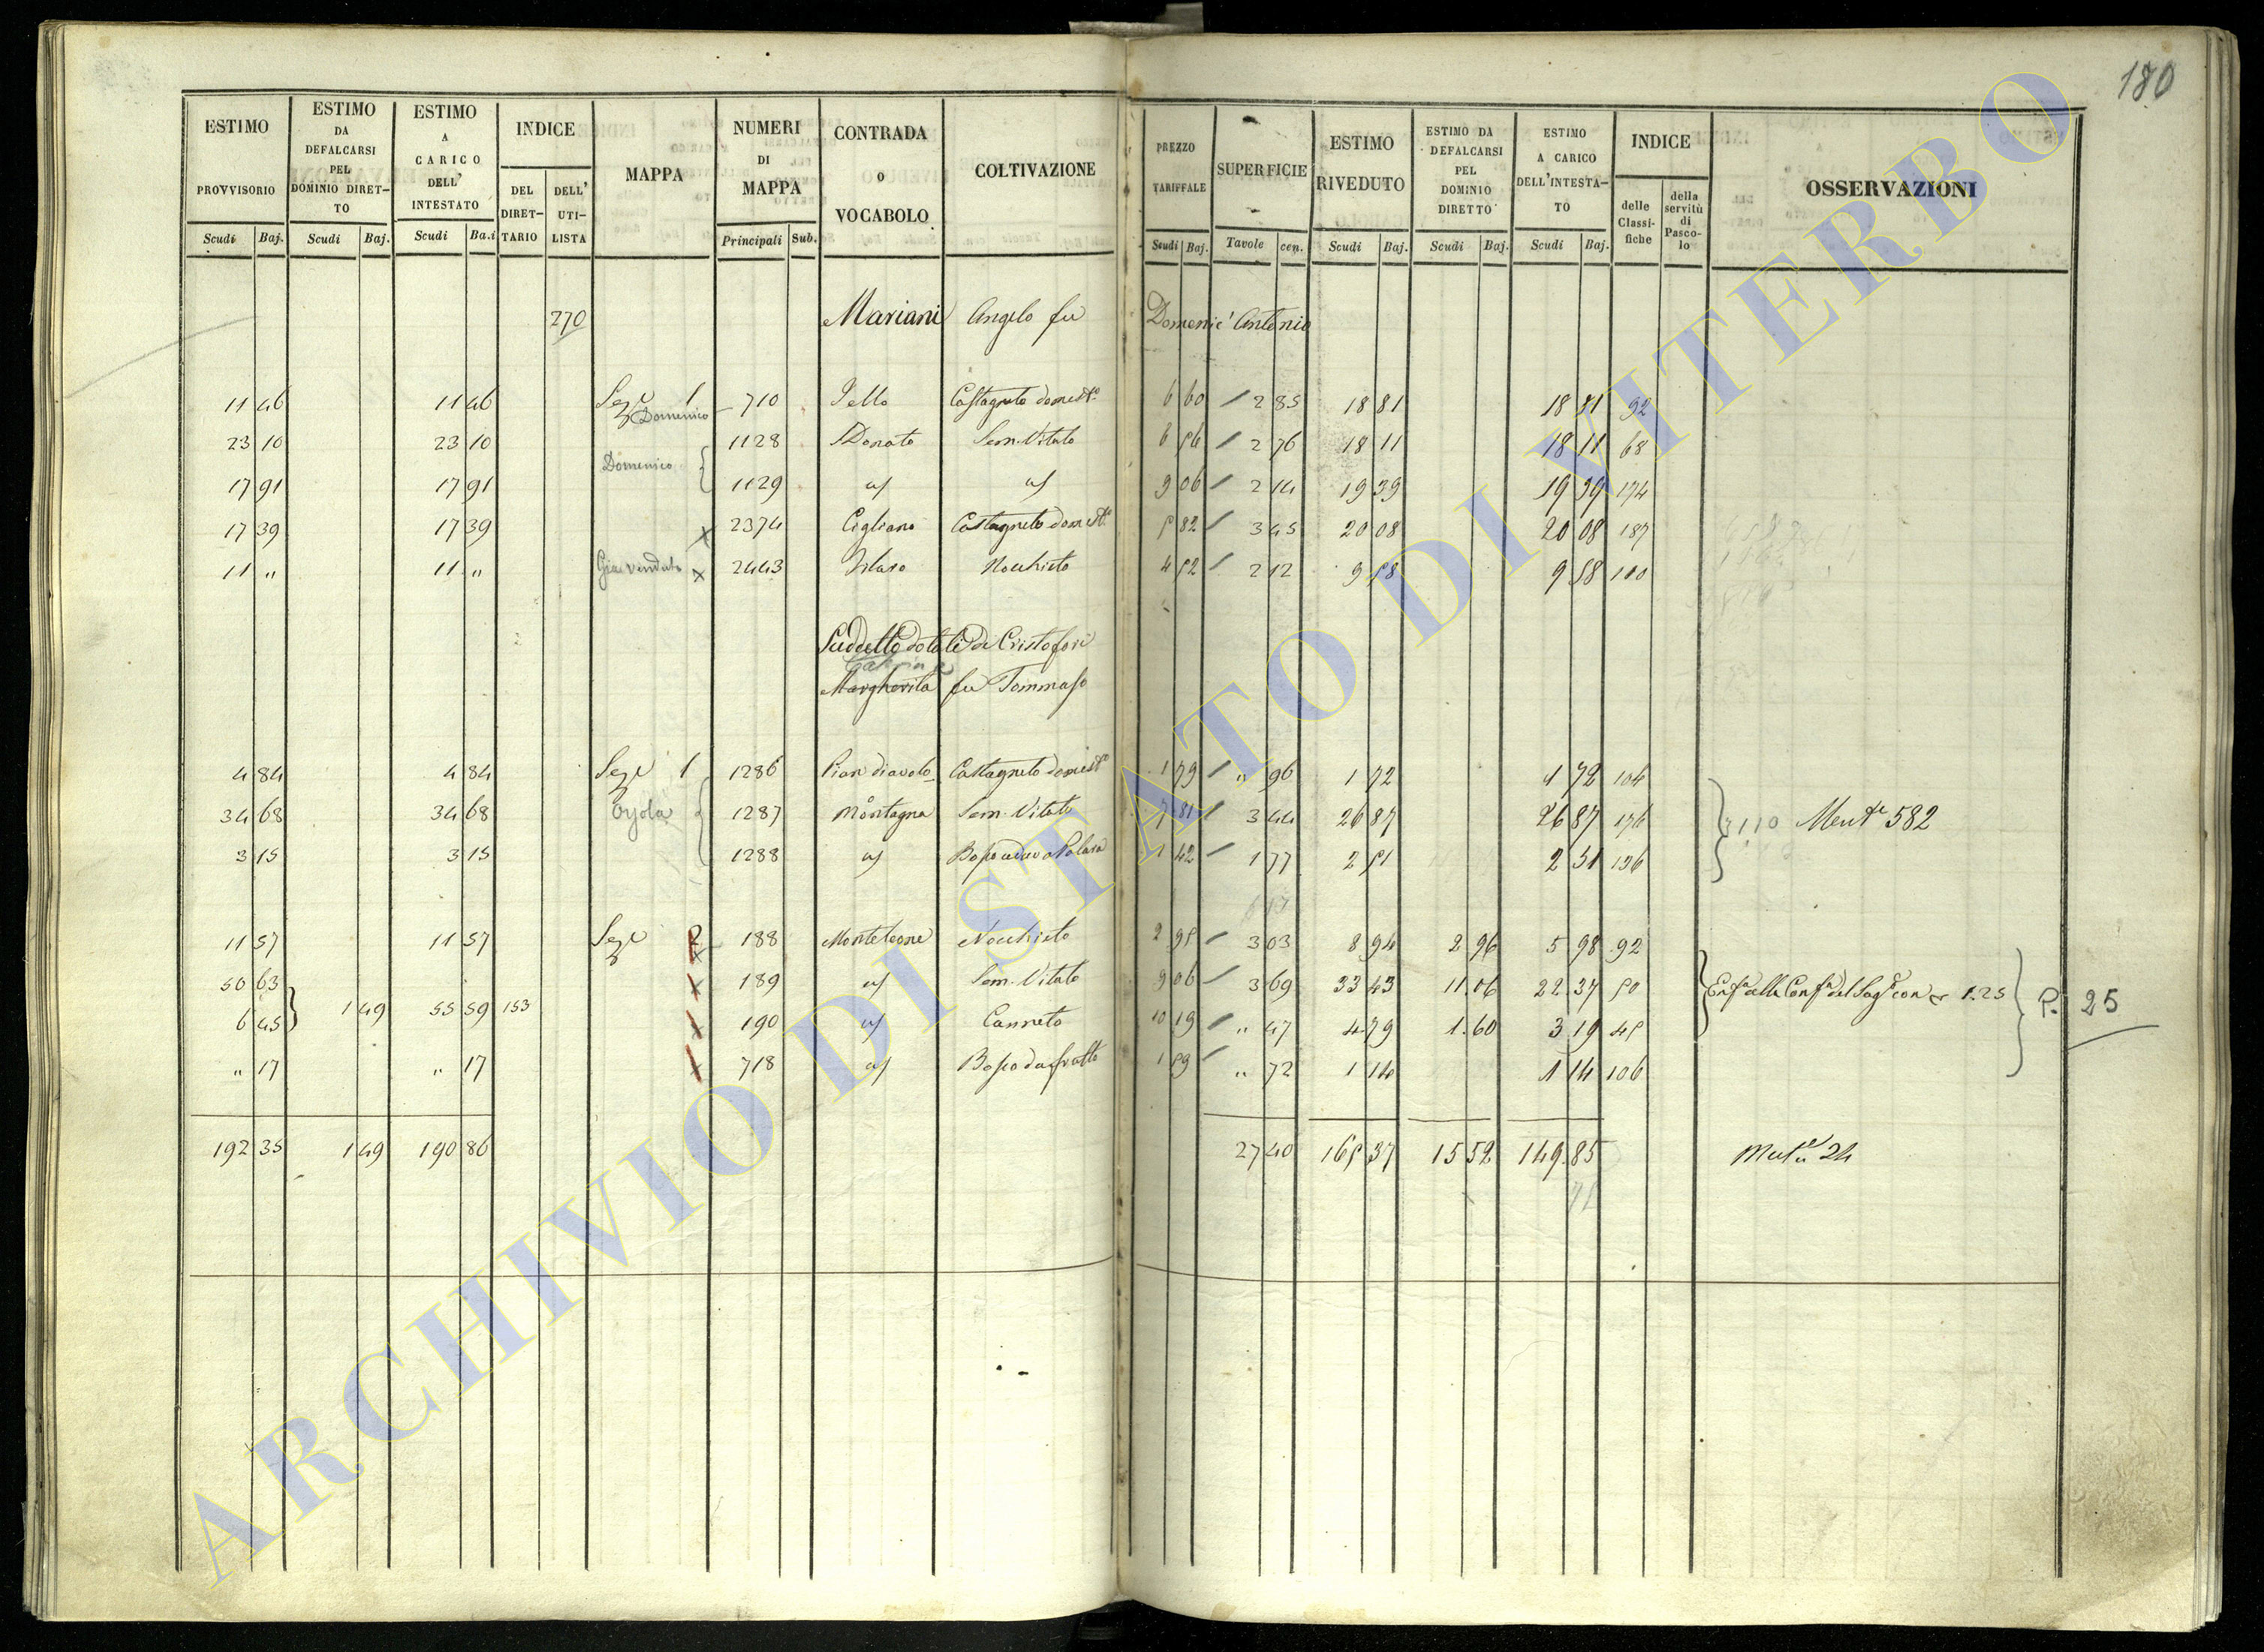 180
ESTIMO PROVVISORIO | ESTIMO DA DEFALCARSI PEL DOMINIO DIRET-TO | ESTIMO A CARICO DELL' INTESTATO | INDICE | MAPPA | NUMERI DI MAPPA | CONTRADA O VOCABOLO | COLTIVAZIONE | PREZZO TARIFFALE | SUPERFICIE | ESTIMO RIVEDUTO | ESTIMO DA DEFALCARSI PEL DOMINIO DIRETTO | ESTIMO A CARICO DELL'INTESTA-TO | INDICE | OSSERVAZIONI
DEL DIRET-TARIO | DELL' UTI-LISTA | delle Classi-fiche | della servitù di Pasco-lo
Scudi | Baj. | Scudi | Baj. | Scudi | Ba.i | Principali | Sub. | Scudi | Baj. | Tavole | cen. | Scudi | Baj. | Scudi | Baj. | Scudi | Baj.
270 Mariani Angelo fu Domenic' Antonio
11 46 11 46 Seze 1 710 Castagneto domest.o 6 60 2 85 18 81 18 81 92
Domenico
23 10 23 10 1128 S Donato Sem. Vitato 6 56 2 76 18 11 18 11 68
Domenico
17 91 17 91 1129 9 06 2 14 19 39 19 39 174
17 39 17 39 x 2374 Cigliano Castagneto domest.o 5 82 3 45 20 08 20 08 187
11 " 11 " Gia venduto x 2443 Nocchieto 4 52 2 12 9 58 9 58 100
Suddetto dotati di Cristofori
Margherita fu Tommaso
4 84 4 84 Seze 1 1286 Pian diavolo Castagneto domest.o 1 79 " 96 1 72 1 72 104
34 68 34 68 1287 Montagna Sem. Vitato 7 81 3 44 26 87 26 87 176 110 582
3 15 3 15 1288 1 42 1 77 2 51 2 51 136
11 57 11 57 Seze 2 188 Monteleone Nocchieto 2 95 3 03 8 94 2 96 5 98 92
50 63 189 Sem. Vitato 9 06 3 69 33 43 11.06 22.37 50 1.25 P. 25
6 45 1 49 55 59 153 190 Canneto 10 19 " 47 4 79 1.60 3 19 45
" 17 " 17 718 1 59 " 72 1 14 1 14 106
192 35 1 49 190 86 27 40 165 37 15 52 149.85 24
ARCHIVIO DI STATO DI VITERBO